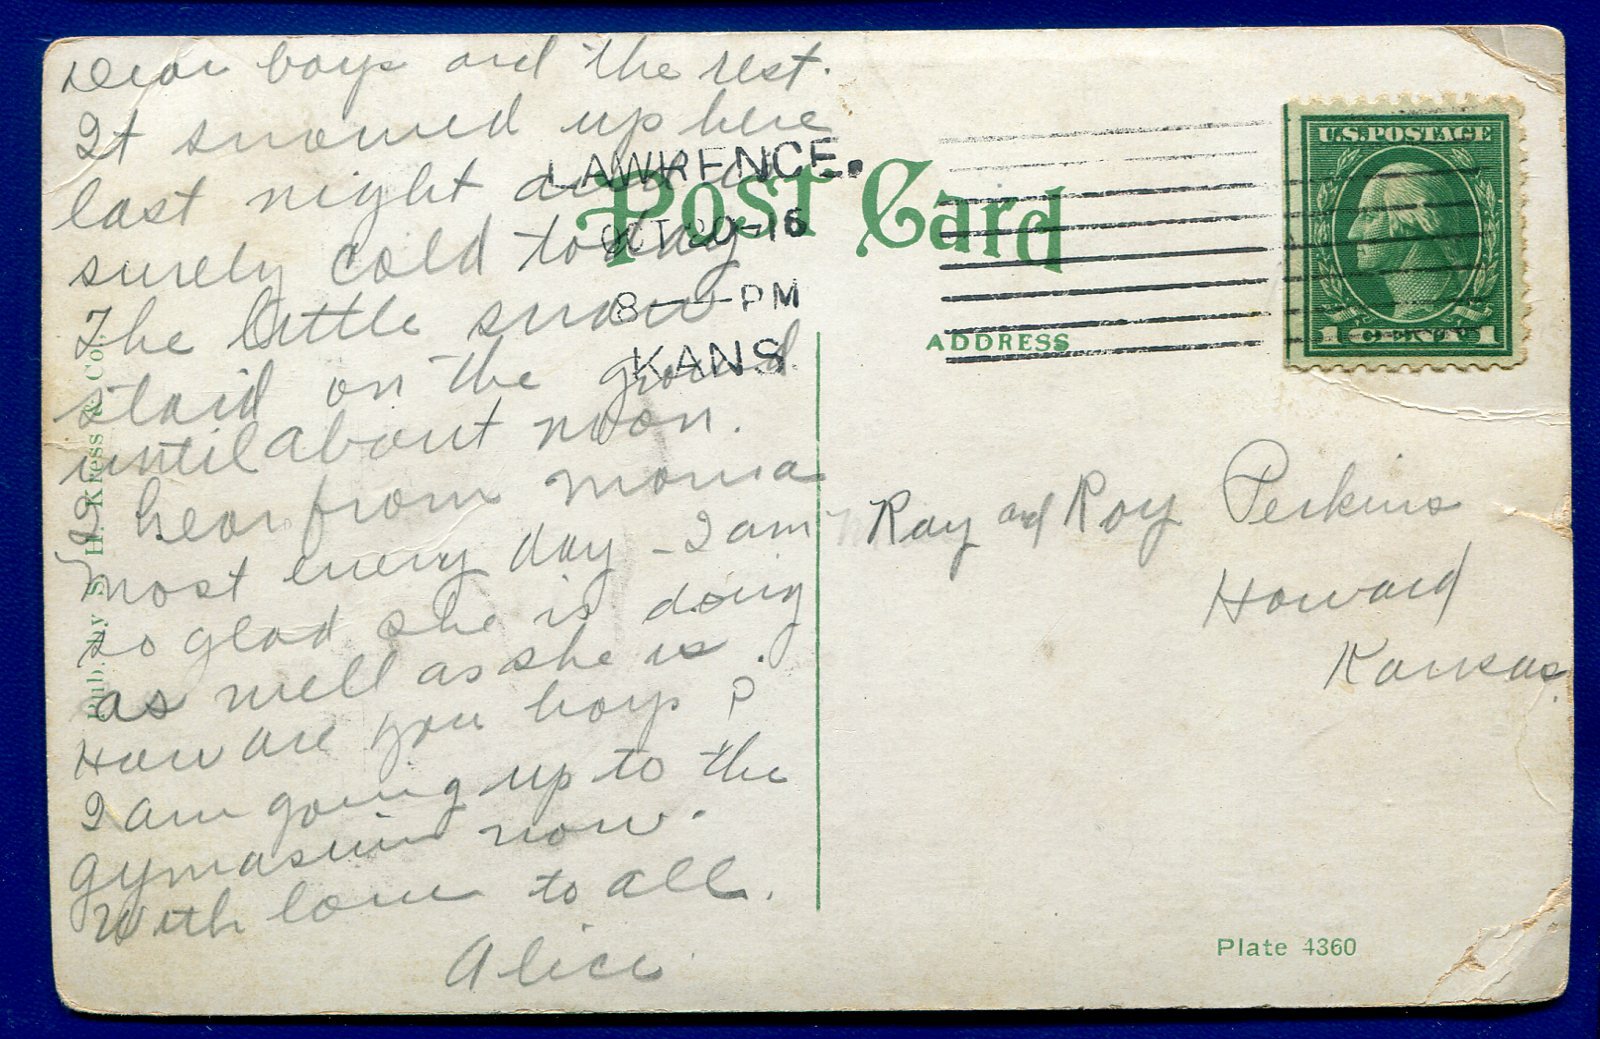 Dear boys and the rest.
It snowed up here
last night and is
surely cold today
The little snow
staid on the ground
until about noon.
I hear from mama
most every day - I am
so glad she is doing
as well as she is.
How are you boys?
I am going up to the
gymasium now.
With love to all.
Alice
Pub. by S. H. Kress & Co.
Post Card
LAWRENCE.
OCT 20-16
8 - PM
KANS
U.S. POSTAGE
1 CENTS 1
ADDRESS
Ray and Roy Perkins
Howard
Kansas.
Plate 4360